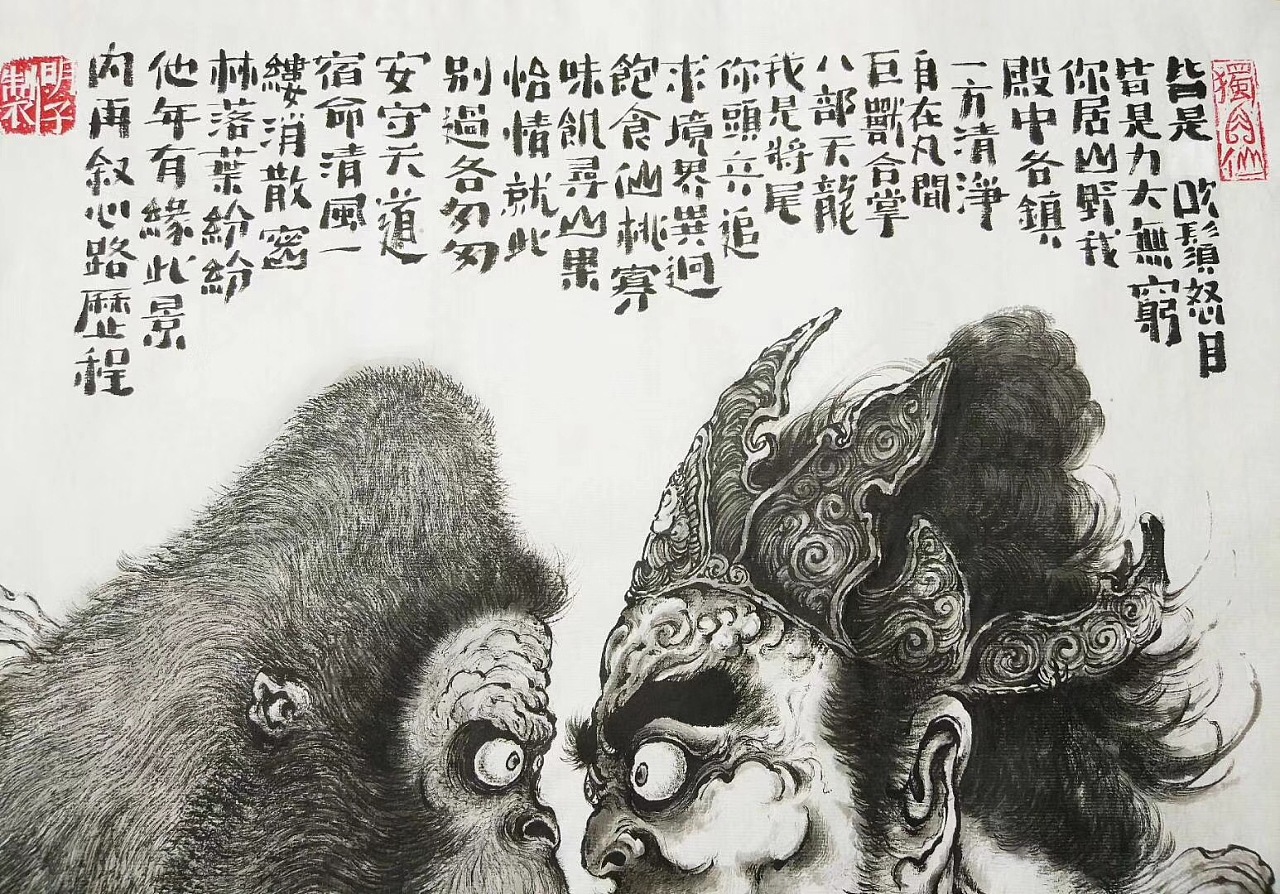 獨角仙
皆是 吹鬚怒目
皆是力大無窮
你居山野我
殿中各鎮
一方清淨
自在凡間
巨獸合掌
八部天龍
我是將尾
你頭兵追
求境界異迥
飽食仙桃寡
味飢尋山果
怡情就此
別過各匆匆
安守天道
宿命清風一
縷消散密
林落葉紛紛
他年有緣此景
内再叙心路歷程
明子製